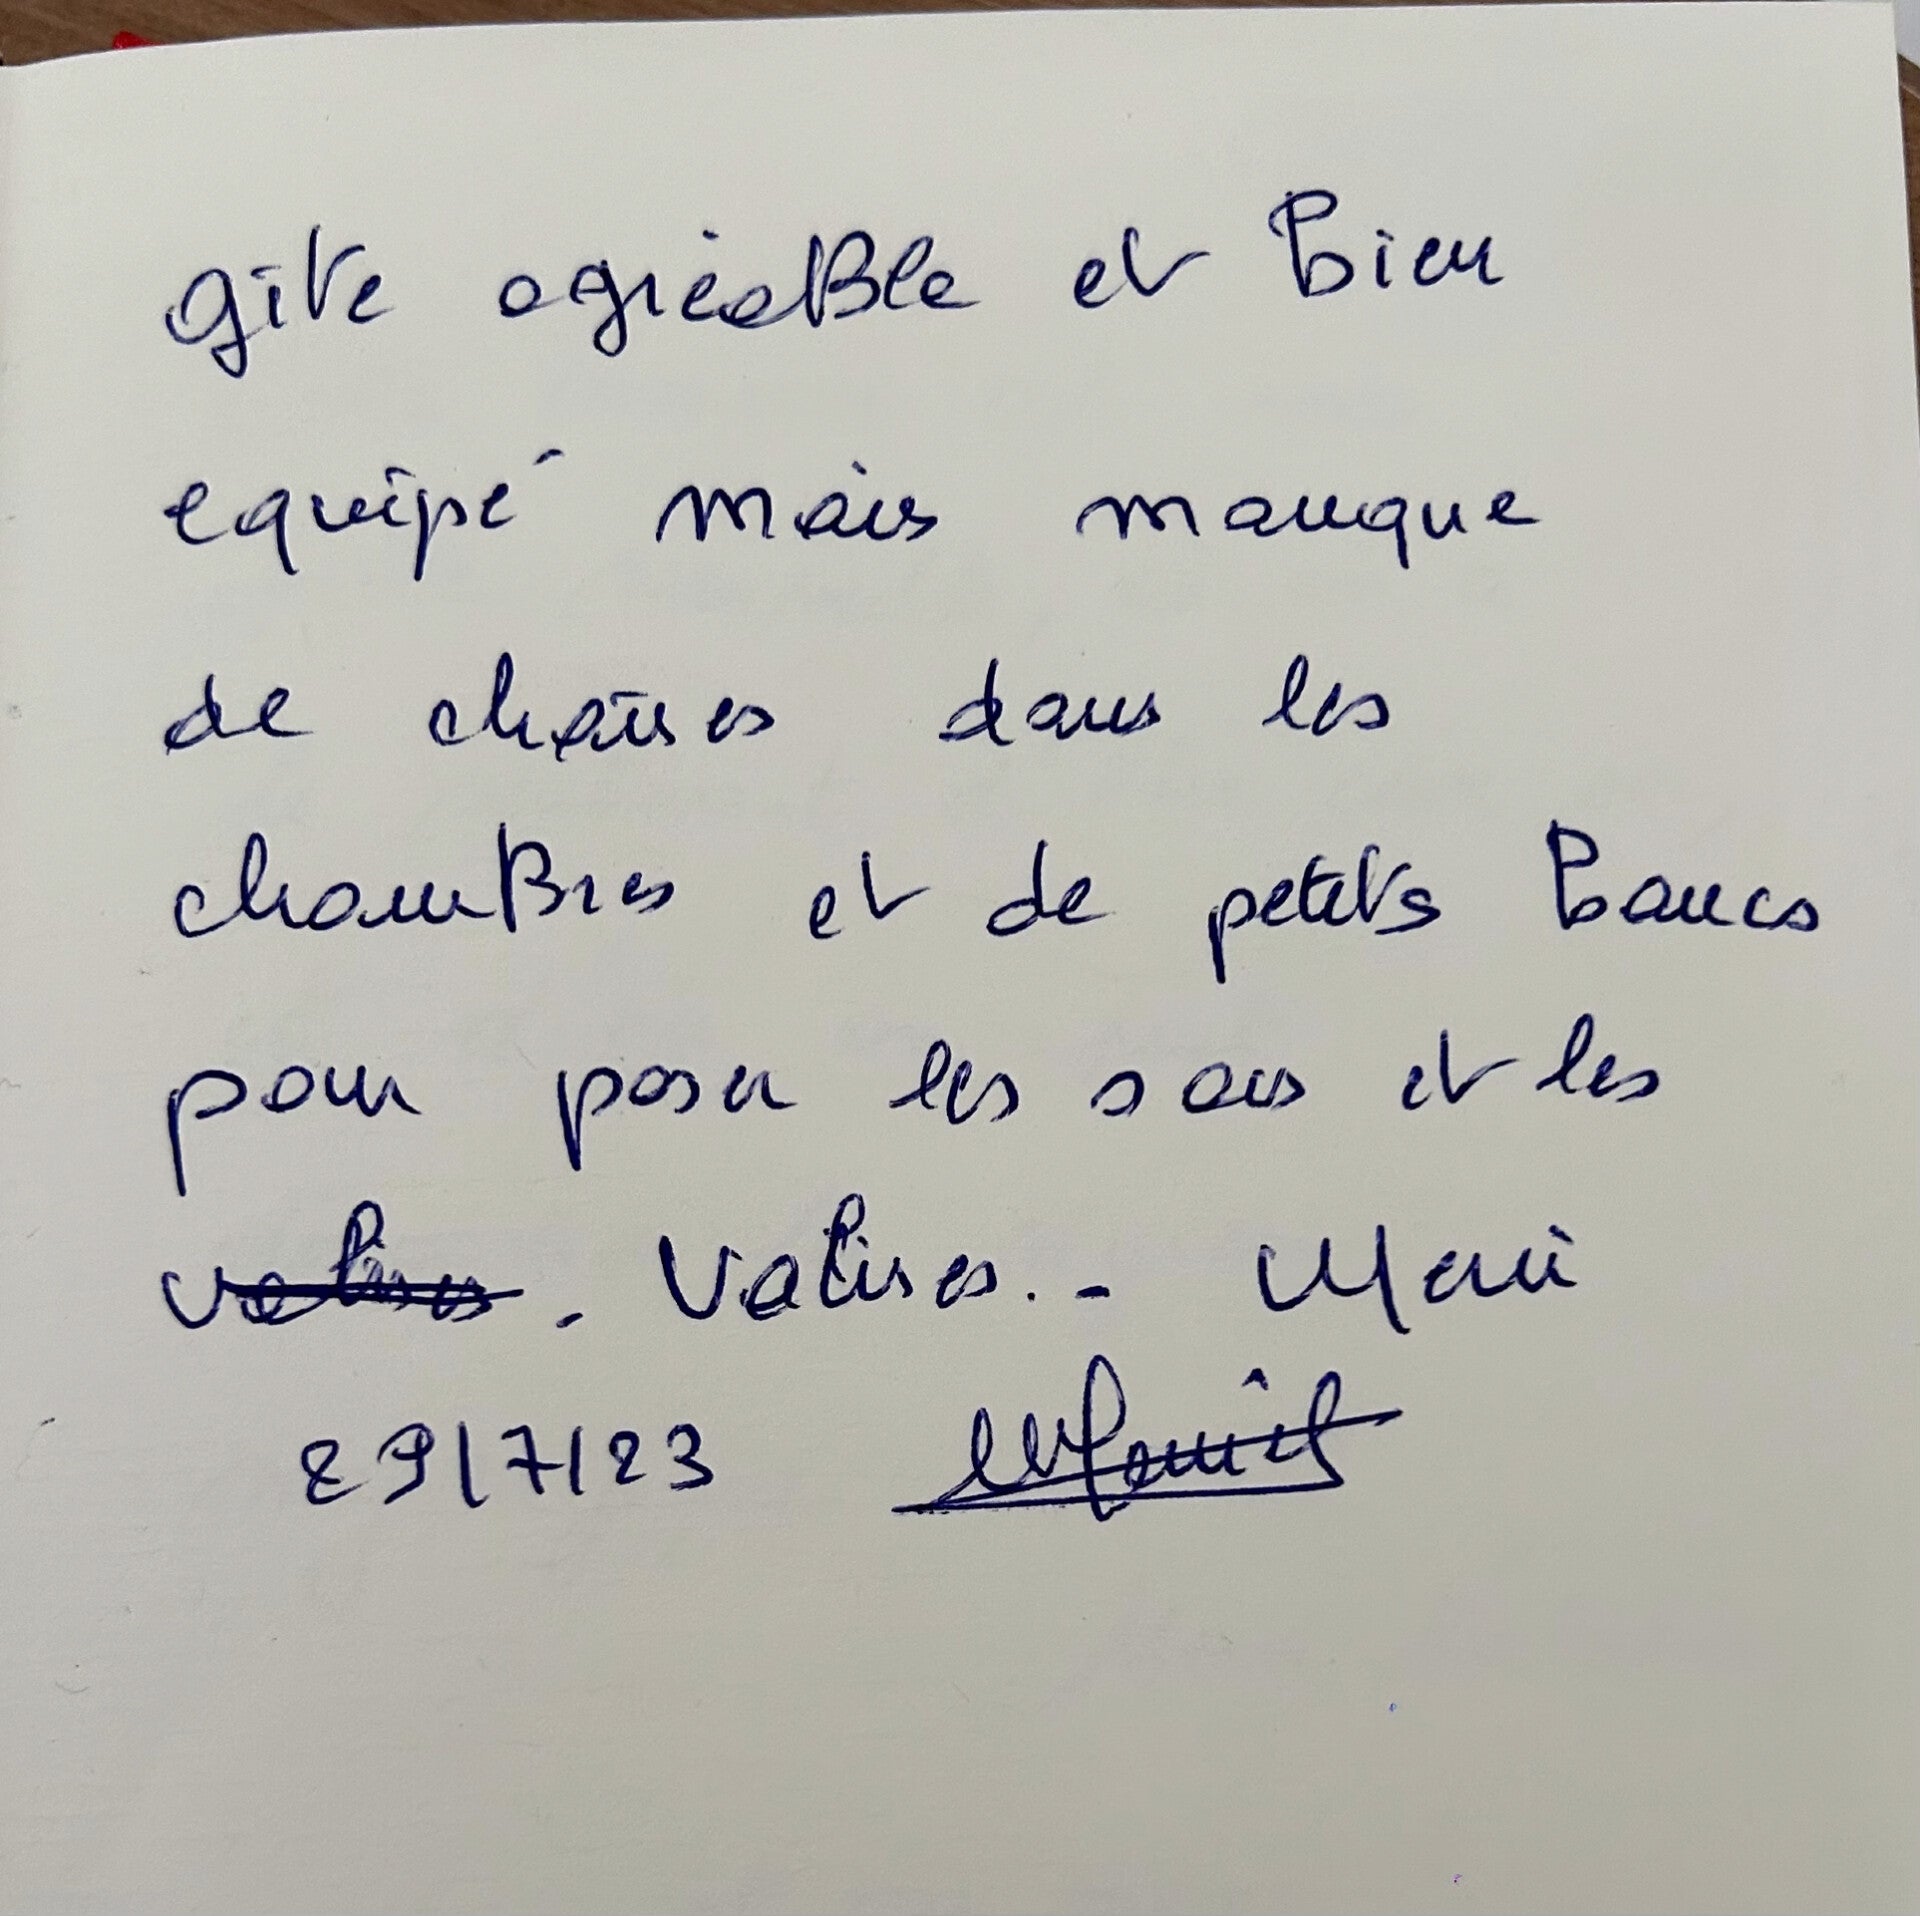 gîte agréaBle et bien
equipé mais manque
de chaises dans les
chamBres et de petits bancs
pour poser les sacs et les
valises. Valises.- Merci
29/7/23